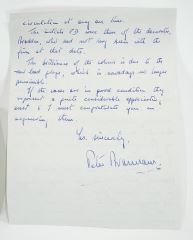 circulation at any one time.
The initials FB were those of the decorator,
Bradden, who did not stay much with the
firm at that date.
The brilliance of the colours is due to the
red lead glaze, which is nowadays no longer
permissible.
If the vases are in good condition they
represent a quite considerable appreciation,
and I must congratulate you on
acquiring them.
Yrs. sincerely,
Peter